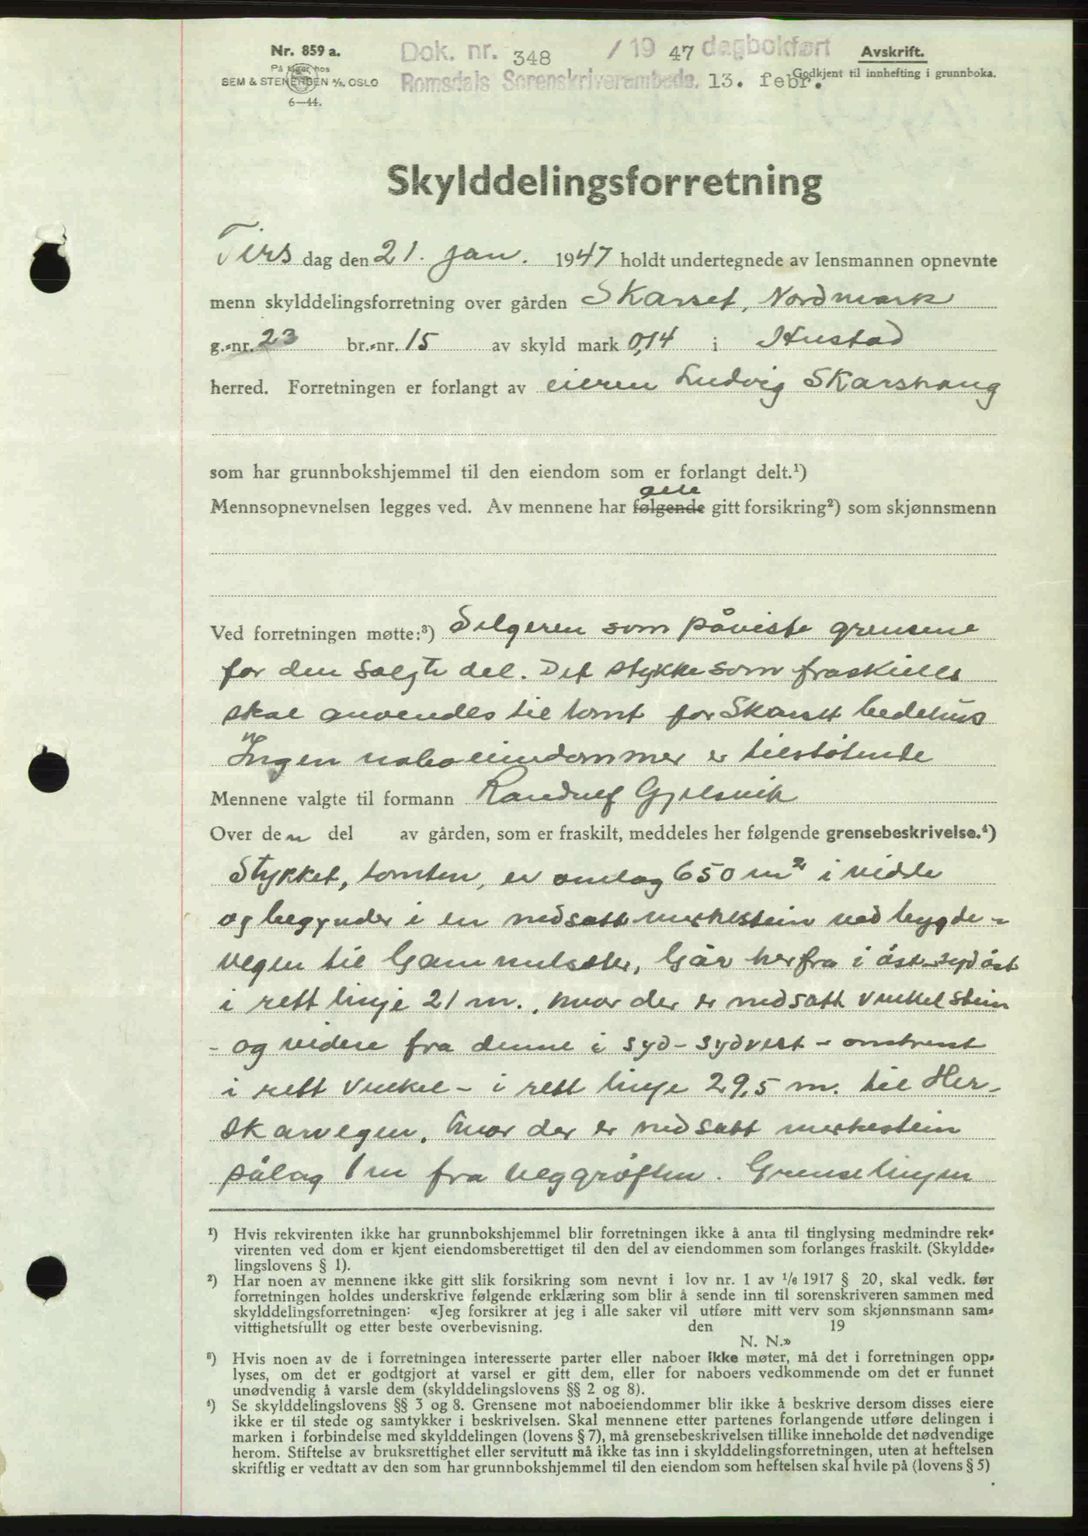 Nr. 859 a.
På lager hos
SEM & STENERSEN A/S, OSLO
6—44.
Dok. nr. 348 / 19 47 dagbokført
Romsdals Sorenskriverembede. 13. febr.
Avskrift.
Godkjent til innhefting i grunnboka.
Skylddelingsforretning
Tirs dag den 21. jan. 1947 holdt undertegnede av lensmannen opnevnte
menn skylddelingsforretning over gården Skarset, Nordmark
g.-nr. 23 br.-nr. 15 av skyld mark 0,14 i Hustad
herred. Forretningen er forlangt av eieren Ludvig Skarshaug
som har grunnbokshjemmel til den eiendom som er forlangt delt.¹)
alle
Mennsopnevnelsen legges ved. Av mennene har følgende gitt forsikring²) som skjønnsmenn
Ved forretningen møtte:³) Selgeren som påviste grensene
for den solgte del. Det stykke som fraskilles
skal anvendes til tomt for Skarset bedehus
Ingen naboeiendommer er tilstøtende
Mennene valgte til formann Randulf Gjelsvik
Over den del av gården, som er fraskilt, meddeles her følgende grensebeskrivelse.⁴)
Stykket, tomten, er omlag 650 m² i vidde
og begynder i en nedsatt merkestein ved bygde-
vegen til Gammelseter, Går herfra i øst-sydøst
i rett linje 21 m., hvor der er nedsatt vinkelstein
- og videre fra denne i syd-sydvest - omtrent
i rett vinkel - i rett linje 29,5 m. til Her-
skarvegen, hvor der er nedsatt merkestein
pålag 1 m fra veggrøften. Grenselinjen
¹) Hvis rekvirenten ikke har grunnbokshjemmel blir forretningen ikke å anta til tinglysing medmindre rek-
virenten ved dom er kjent eiendomsberettiget til den del av eiendommen som forlanges fraskilt. (Skyldde-
lingslovens § 1).
²) Har noen av mennene ikke gitt slik forsikring som nevnt i lov nr. 1 av 1/6 1917 § 20, skal vedk. før
forretningen holdes underskrive følgende erklæring som blir å sende inn til sorenskriveren sammen med
skylddelingsforretningen: «Jeg forsikrer at jeg i alle saker vil utføre mitt verv som skjønnsmann sam-
vittighetsfullt og etter beste overbevisning. den 19
N. N.»
³) Hvis noen av de i forretningen interesserte parter eller naboer ikke møter, må det i forretningen opp-
lyses, om det er godtgjort at varsel er gitt dem, eller for naboers vedkommende om det er funnet
unødvendig å varsle dem (skylddelingslovens §§ 2 og 8).
⁴) Se skylddelingslovens §§ 3 og 8. Grensene mot naboeiendommer blir ikke å beskrive dersom disses eiere
ikke er til stede og samtykker i beskrivelsen. Skal mennene etter partenes forlangende utføre delingen i
marken i forbindelse med skylddelingen (lovens § 7), må grensebeskrivelsen tillike inneholde det nødvendige
herom. Stiftelse av bruksrettighet eller servitutt må ikke tas inn i skylddelingsforretningen, uten at heftelsen
skriftlig er vedtatt av den som har grunnbokshjemmel til den eiendom som heftelsen skal hvile på (lovens § 5)